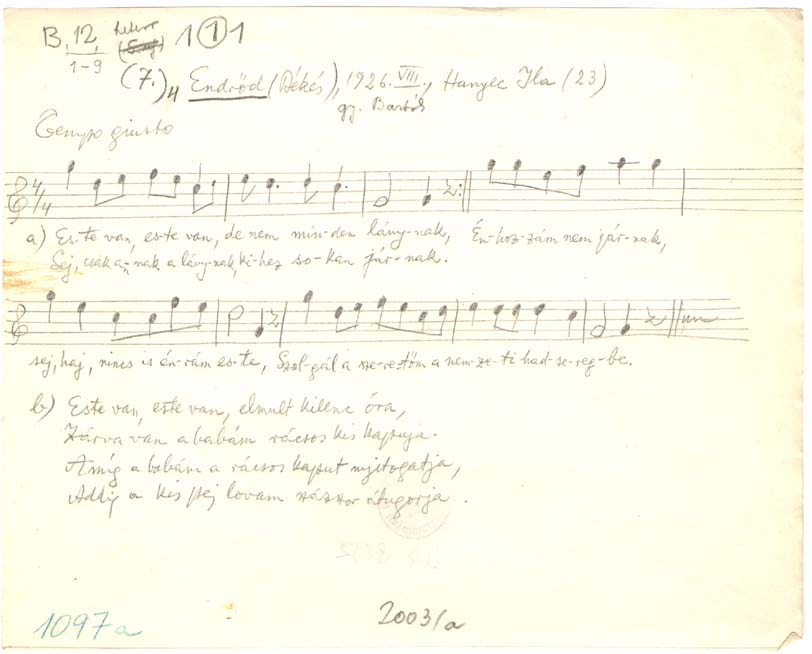 B. 12, 1 1 1
1-9
(7.)4 Endrőd (Békés), 1926. VIII., Hanyec Ila (23)
gy. Bartók
Tempo giusto
4/4
a) Es-te van, es-te van, de nem min-den lány-nak, Én-hoz-zám nem jár-nak,
Sej, csak a-nnak a lány-nak, ki-hez so-kan jár-nak.
sej, haj, nincs is én-rám es-te, Szol-gál a sze-re-tőm a nem-ze-ti had-se-reg-be.
b) Este van, este van, elmult kilenc óra,
Zárva van a babám rácsos kis kapuja.
Amíg a babám a rácsos kaput nyitogatja,
Addig a kis pej lovam százszor átugorja.
1097a 2003/a